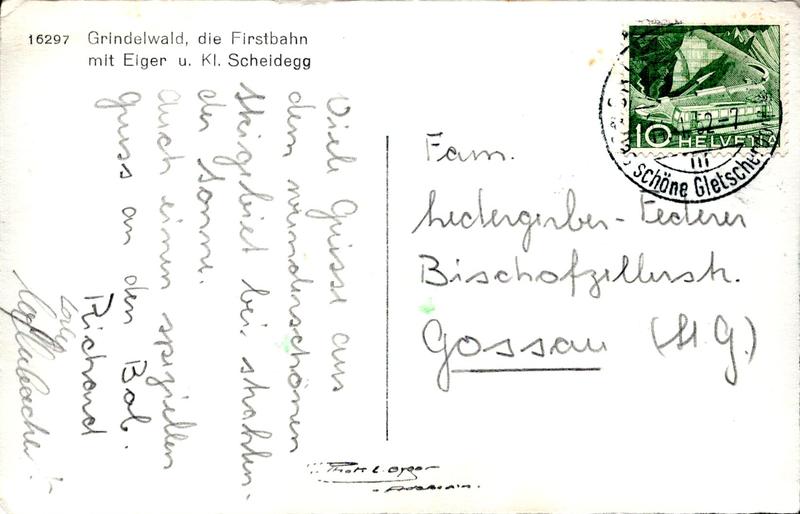 16297 Grindelwald, die Firstbahn
mit Eiger u. Kl. Scheidegg
Viele Grüsse aus
dem wunderschönen
Skigebiet bei strahlen-
der Sonne.
Auch einen speziellen
Gruss an den Bob.
Richard
10 HELVETIA
52-7
schöne Gletscherdorf
Fam.
Ledergerber-Federer
Bischofzellerstr.
Gossau (St. G.)